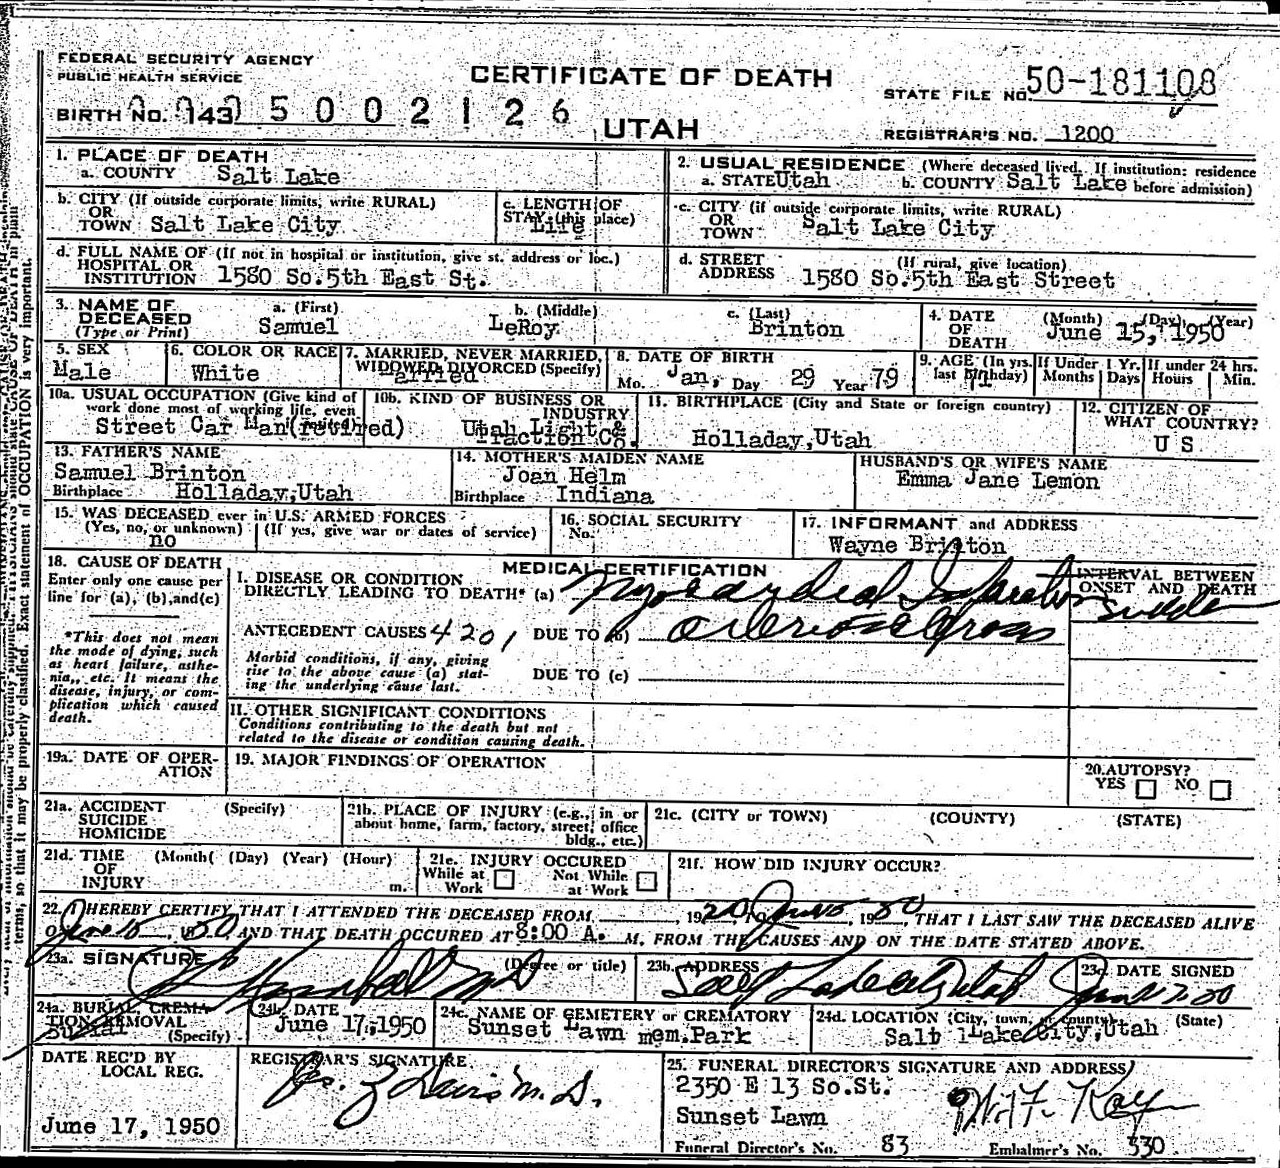 FEDERAL SECURITY AGENCY
PUBLIC HEALTH SERVICE
CERTIFICATE OF DEATH
STATE FILE NO. 50-181108
BIRTH No. 143 5002126
UTAH
REGISTRAR'S NO. 1200
1. PLACE OF DEATH
a. COUNTY Salt Lake
2. USUAL RESIDENCE (Where deceased lived. If institution: residence before admission)
a. STATE Utah b. COUNTY Salt Lake
b. CITY (If outside corporate limits, write RURAL) OR TOWN Salt Lake City
c. LENGTH OF STAY (this place) Life
c. CITY (if outside corporate limits, write RURAL) OR TOWN Salt Lake City
d. FULL NAME OF (If not in hospital or institution, give st. address or loc.) HOSPITAL OR INSTITUTION 1580 So.5th East St.
d. STREET ADDRESS (If rural, give location) 1580 So.5th East Street
3. NAME OF DECEASED (Type or Print)
a. (First) Samuel
b. (Middle) LeRoy
c. (Last) Brinton
4. DATE OF DEATH (Month) (Day) (Year) June 15, 1950
5. SEX Male
6. COLOR OR RACE White
7. MARRIED, NEVER MARRIED, WIDOWED DIVORCED (Specify) Married
8. DATE OF BIRTH Mo. Jan, Day 29 Year 79
9. AGE (In yrs. last birthday) 71
If Under 1 Yr. Months Days
If under 24 hrs. Hours Min.
10a. USUAL OCCUPATION (Give kind of work done most of working life, even retired) Street Car Man(retired)
10b. KIND OF BUSINESS OR INDUSTRY Utah Light & Traction Co.
11. BIRTHPLACE (City and State or foreign country) Holladay,Utah
12. CITIZEN OF WHAT COUNTRY? U S
13. FATHER'S NAME Samuel Brinton
Birthplace Holladay,Utah
14. MOTHER'S MAIDEN NAME Joan Helm
Birthplace Indiana
HUSBAND'S OR WIFE'S NAME Emma Jane Lemon
15. WAS DECEASED ever in U.S. ARMED FORCES (Yes, no, or unknown) (If yes, give war or dates of service) no
16. SOCIAL SECURITY No.
17. INFORMANT and ADDRESS Wayne Brinton
18. CAUSE OF DEATH
Enter only one cause per line for (a), (b),and(c)
*This does not mean the mode of dying, such as heart failure, asthenia, etc. It means the disease, injury, or complication which caused death.
MEDICAL CERTIFICATION
INTERVAL BETWEEN ONSET AND DEATH
I. DISEASE OR CONDITION DIRECTLY LEADING TO DEATH* (a) Myocardial Infarction sudden
ANTECEDENT CAUSES 4201 DUE TO (b) arteriosclerosis
Morbid conditions, if any, giving rise to the above cause (a) stating the underlying cause last.
DUE TO (c)
II. OTHER SIGNIFICANT CONDITIONS
Conditions contributing to the death but not related to the disease or condition causing death.
19a. DATE OF OPERATION
19. MAJOR FINDINGS OF OPERATION
20. AUTOPSY? YES NO
21a. ACCIDENT SUICIDE HOMICIDE (Specify)
21b. PLACE OF INJURY (e.g., in or about home, farm, factory, street, office bldg., etc.)
21c. (CITY or TOWN) (COUNTY) (STATE)
21d. TIME OF INJURY (Month( (Day) (Year) (Hour) m.
21e. INJURY OCCURED While at Work Not While at Work
21f. HOW DID INJURY OCCUR?
22. I HEREBY CERTIFY THAT I ATTENDED THE DECEASED FROM 19 , 1950 THAT I LAST SAW THE DECEASED ALIVE
June 15, 1950 AND THAT DEATH OCCURED AT 8:00 A. M, FROM THE CAUSES AND ON THE DATE STATED ABOVE.
23a. SIGNATURE (Degree or title)
23b. ADDRESS Salt Lake City Utah
23c. DATE SIGNED
24a. BURIAL, CREMATION REMOVAL (Specify) Burial
24b. DATE June 17,1950
24c. NAME OF CEMETERY or CREMATORY Sunset Lawn mem.Park
24d. LOCATION (City, town, or county) (State) Salt Lake City,Utah
DATE REC'D BY LOCAL REG. June 17, 1950
REGISTRAR'S SIGNATURE M.D.
25. FUNERAL DIRECTOR'S SIGNATURE AND ADDRESS
2350 E 13 So.St.
Sunset Lawn
Funeral Director's No. 83
Embalmer's No. 330
terms, so that it may be properly classified. Exact statement of OCCUPATION is very important.